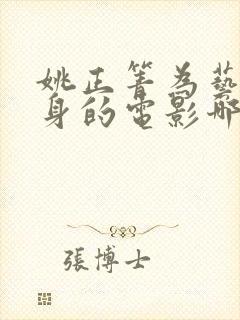 姚正箐為藝
身的電影哪
張博士